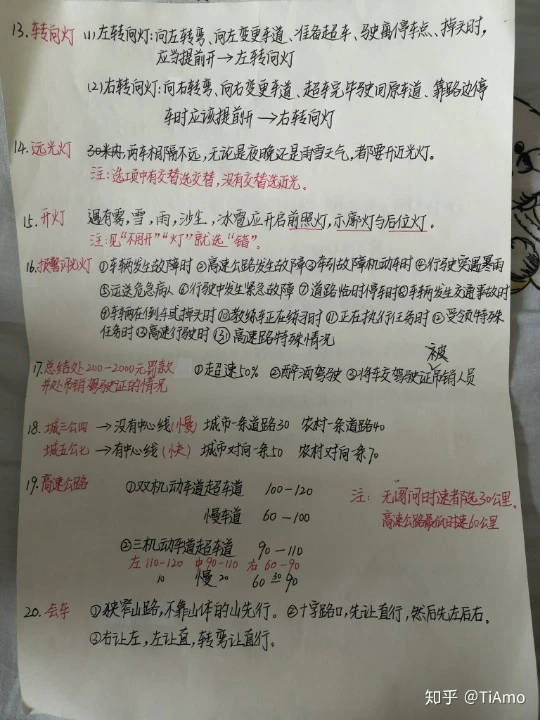 13.转向灯 (1)左转向灯:向左转弯、向左变更车道、准备超车、驶离停车点、掉头时,
应当提前开→左转向灯
(2)右转向灯:向右转弯、向右变更车道、超车完毕驶回原车道、靠路边停
车时应该提前开→右转向灯
14.远光灯 30米内,两车相隔不远,无论是夜晚还是雨雪天气,都要开近光灯。
注:选项中有交替选交替,没有交替选近光。
15.开灯 遇有雾,雪,雨,沙尘,冰雹应开启前照灯,示廓灯与后位灯。
注:见“不用开”“灯”就选“错”。
16.报警闪光灯 ①车辆发生故障时 ②高速公路发生故障③牵引故障机动车时 ④行驶突遇暴雨
⑤运送危急病人 ⑥行驶中发生紧急故障 ⑦道路临时停车时⑧车辆发生交通事故时
⑨车辆在倒车或掉头时 ⑩教练车正在练习时 ⑪正在执行任务时 ⑫受领特殊
任务时 ⑬高速行驶时 ⑶高速路特殊情况
17.总结处200-2000元罚款 ①超速50% ②醉酒驾驶 ③将车交驾驶证被吊销人员
并处吊销驾驶证的情况
18.城三公四→没有中心线(慢) 城市一条道路30 农村一条道路40
城五公七→有中心线(快) 城市对向一条50 农村对向一条70
19.高速公路 ①双机动车道超车道 100-120 注: 无论何时速都选30公里。
慢车道 60-100 高速公路最低时速60公里
②三机动车道超车道 90-110
左110-120 中90-110 右60-90
10 慢20 60 30 90
20.会车 ①狭窄山路,不靠山体的山先行。②十字路口,先让直行,然后先左后右。
③右让左,左让直,转弯让直行。
知乎 @TiAmo